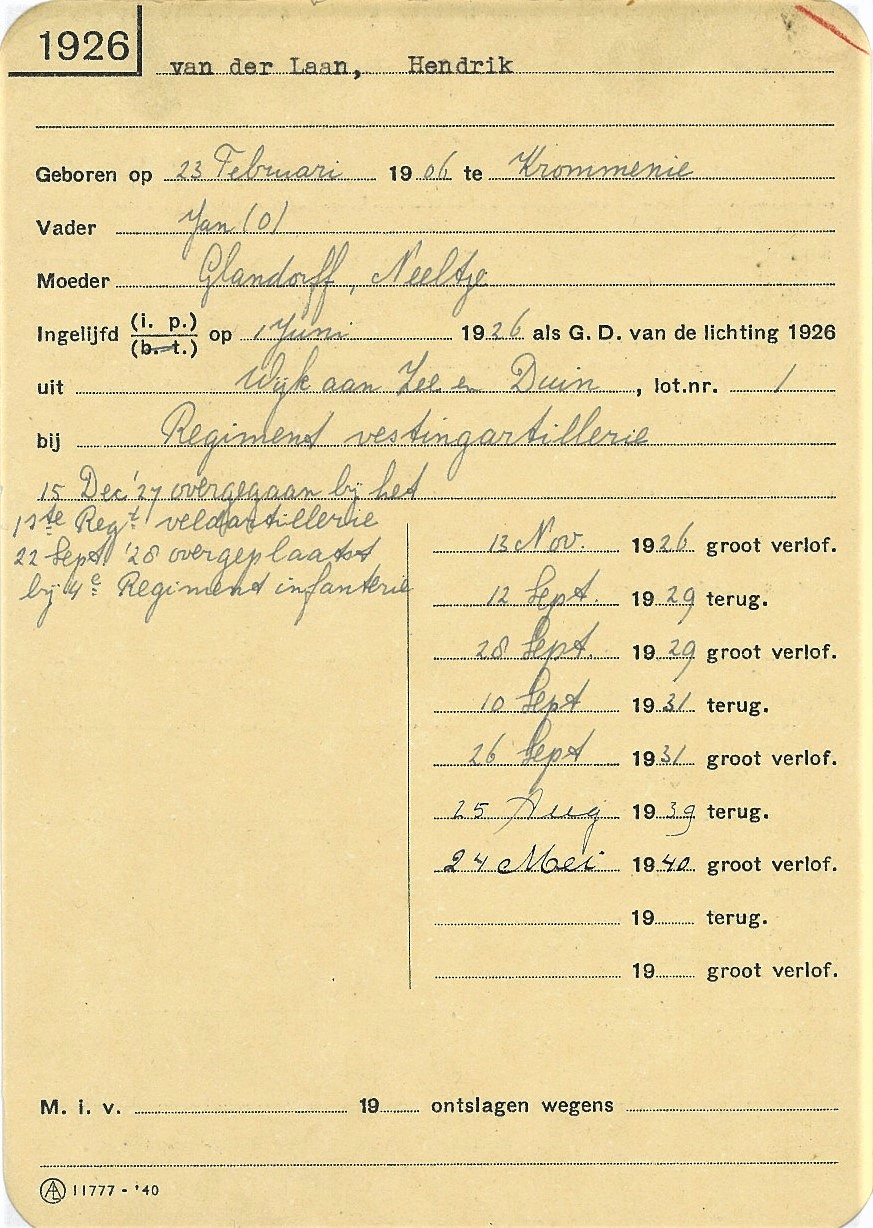 1926
van der Laan, Hendrik
Geboren op 23 Februari 1906 te Krommenie
Vader Jan (O)
Moeder Glandorff, Neeltje
Ingelijfd (i. p.) (b. t.) op 1 Juni 1926 als G. D. van de lichting 1926
uit Wijk aan Zee en Duin, lot.nr. 1
bij Regiment vestingartillerie
15 Dec '27 overgegaan bij het
1ste Regt veldartillerie
22 Sept '28 overgeplaatst
bij 4e Regiment infanterie
13 Nov. 1926 groot verlof.
12 Sept. 1929 terug.
28 Sept. 1929 groot verlof.
10 Sept 1931 terug.
26 Sept 1931 groot verlof.
25 Aug 1939 terug.
24 Mei 1940 groot verlof.
19 terug.
19 groot verlof.
M. i. v. 19 ontslagen wegens
AL 11777 - '40